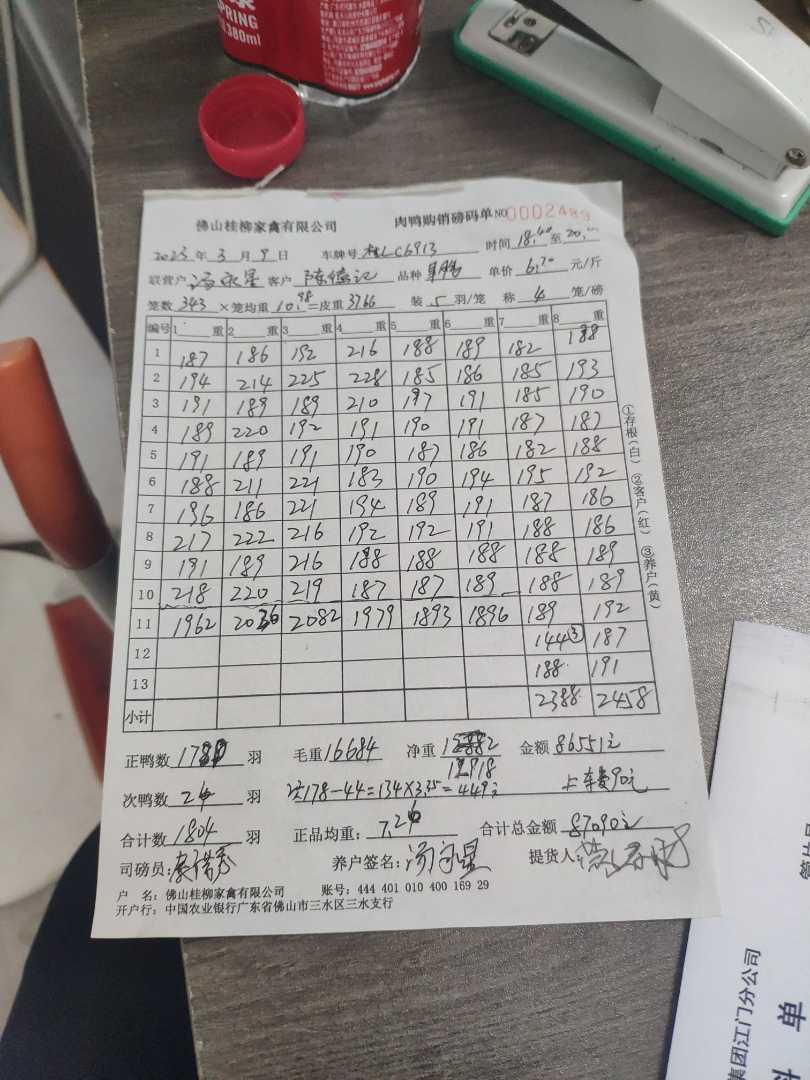 SPRING
380ml
佛山桂柳家禽有限公司 肉鸭购销磅码单 NO 0002489
2023 年 3 月 9 日 车牌号 桂LC6913 时间 18:40 至 20:
联营户 汤永星 客户 陈德记 品种 单价 6.70 元/斤
笼数 343 ×笼均重 10.98 =皮重 3766 装 5 羽/笼 称 4 笼/磅
编号 1 重 2 重 3 重 4 重 5 重 6 重 7 重 8 重
1 187 186 192 216 188 189 182 188
2 194 214 225 228 185 186 185 193
3 191 189 189 210 197 191 185 190
4 189 220 192 191 190 191 187 187
5 191 189 191 190 187 186 182 188
6 188 211 221 183 190 194 195 192
7 196 186 221 194 189 191 187 186
8 217 222 216 192 192 191 188 186
9 191 189 216 188 188 188 188 189
10 218 220 219 187 187 189 188 189
11 1962 2036 2082 1979 1893 1896 189 192
12 144③ 187
13 188 191
小计 2388 2458
①存根(白) ②客户(红) ③养户(黄)
正鸭数 羽 毛重 16684 净重 12918 金额 86551元
次鸭数 24 羽 次178-44=134×3.35=449元 上车费90元
合计数 1804 羽 正品均重: 7.26 合计总金额 87090元
司磅员: 养户签名: 汤永星 提货人
户 名: 佛山桂柳家禽有限公司 账号: 444 401 010 400 169 29
开户行: 中国农业银行广东省佛山市三水区三水支行
集团江门分公司
单